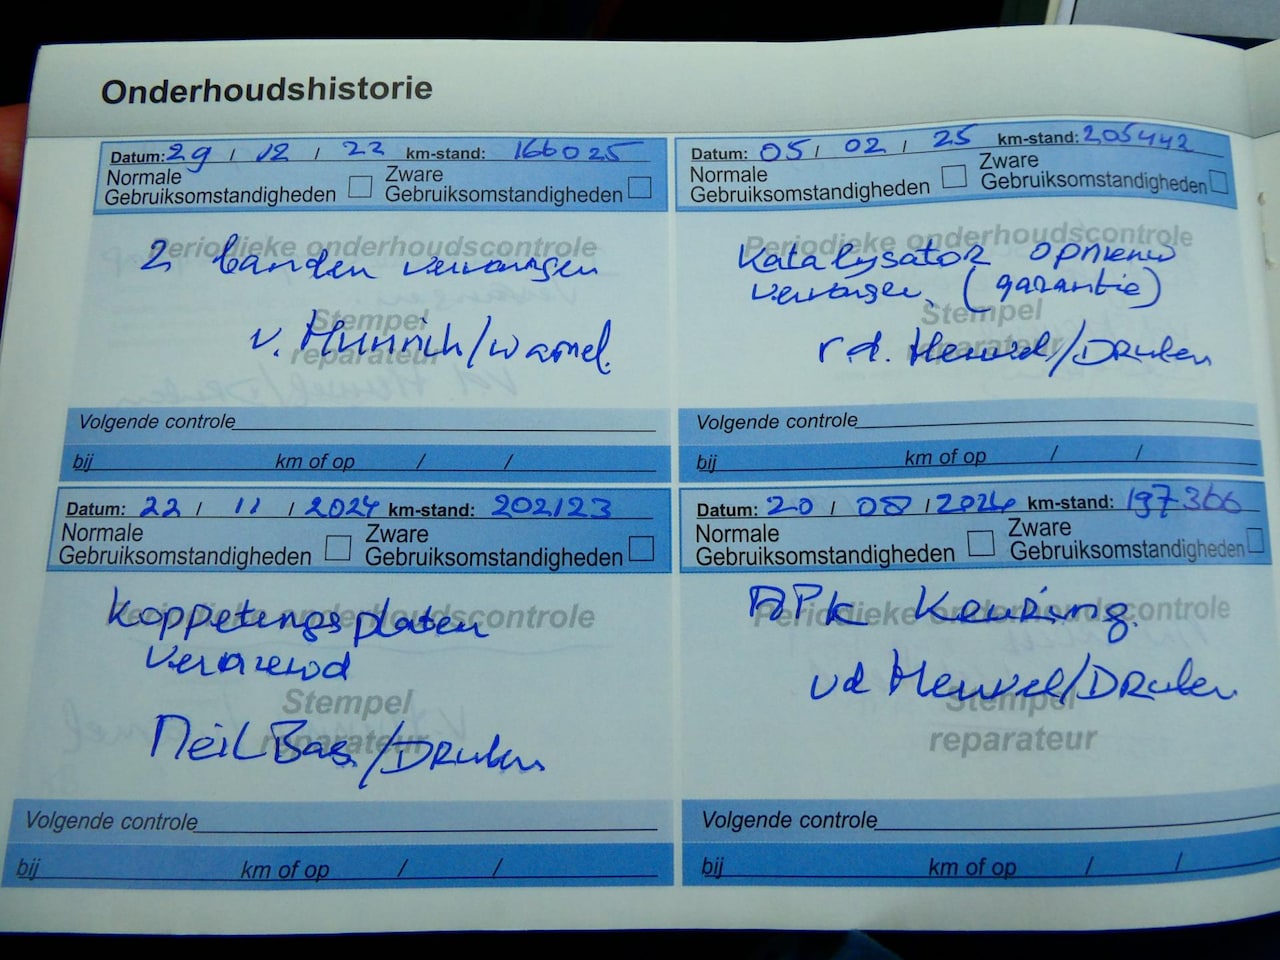 Onderhoudshistorie
Datum: 29 / 12 / 22 km-stand: 166025
Normale
Gebruiksomstandigheden
Zware
Gebruiksomstandigheden
Periodieke onderhoudscontrole
2 banden vervangen
Stempel
reparateur
v. /wamel.
Volgende controle
bij km of op / /
Datum: 05 / 02 / 25 km-stand: 205442
Normale
Gebruiksomstandigheden
Zware
Gebruiksomstandigheden
Periodieke onderhoudscontrole
Katalysator opnieuw
vervangen. (garantie)
Stempel
reparateur
vd. Heuvel/Druten
Volgende controle
bij km of op / /
Datum: 22 / 11 / 2024 km-stand: 202123
Normale
Gebruiksomstandigheden
Zware
Gebruiksomstandigheden
Periodieke onderhoudscontrole
Koppelingsplaten
Stempel
reparateur
Neil Bas/Druten
Volgende controle
bij km of op / /
Datum: 20 / 08 / 2024 km-stand: 197366
Normale
Gebruiksomstandigheden
Zware
Gebruiksomstandigheden
Periodieke onderhoudscontrole
APK Keuring.
Stempel
reparateur
vd Heuvel/Druten
Volgende controle
bij km of op / /